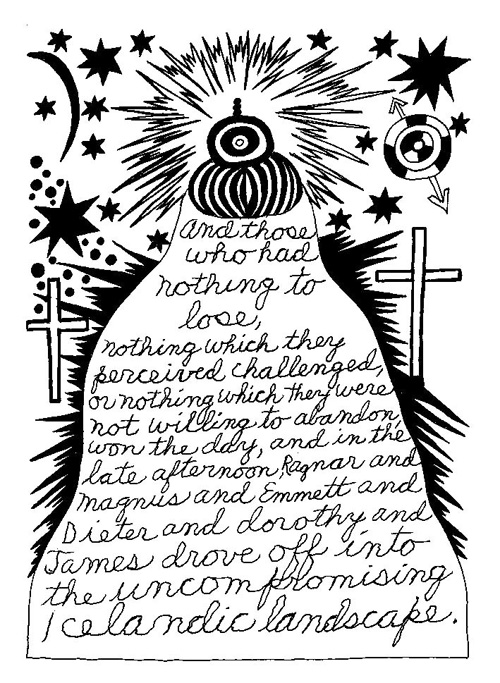 And those
who had
nothing to
lose,
nothing which they
perceived challenged,
or nothing which they were
not willing to abandon,
won the day, and in the
late afternoon Ragnar and
magnus and Emmett and
Dieter and dorothy and
James drove off into
the uncompromising
Icelandic landscape.